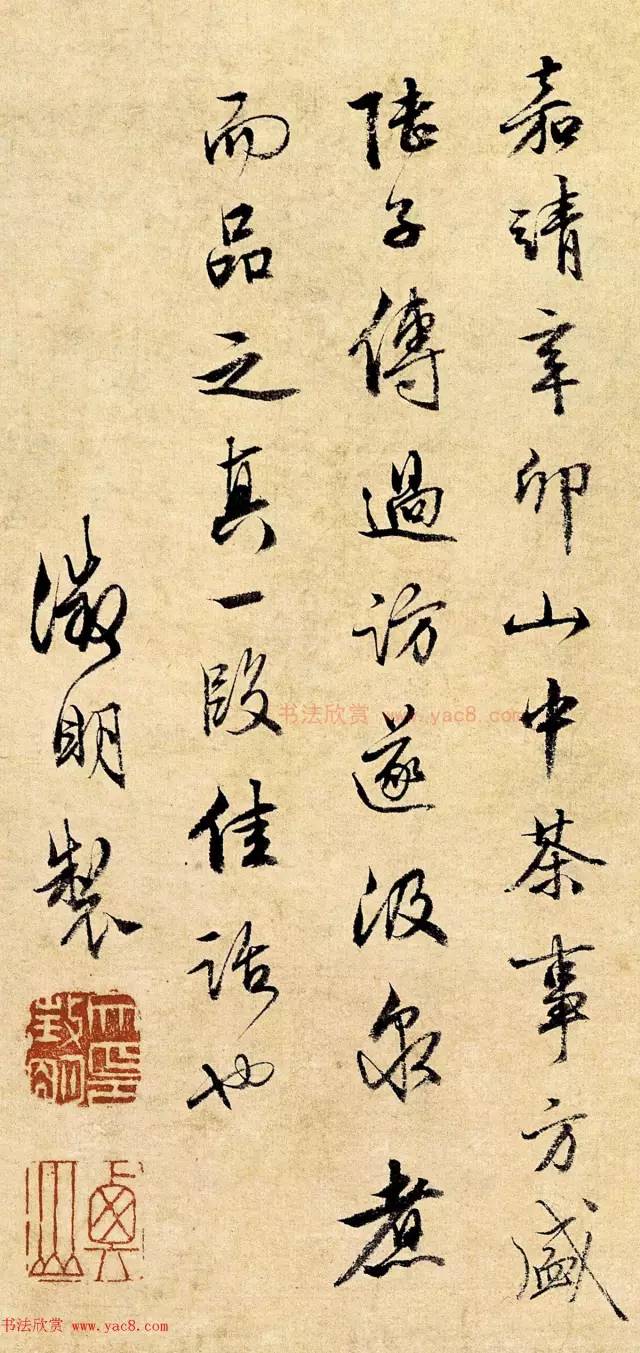 嘉靖辛卯山中茶事方盛
陸子傳過訪遂汲泉煮
而品之真一段佳話也
徵明製
書法欣賞 www.yac8.com
书法欣赏 www.yac8.com